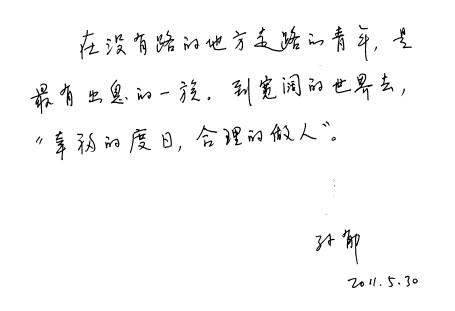 在没有路的地方走路的青年，是
最有出息的一族。到宽阔的世界去，
“幸福的度日，合理的做人”。
孙郁
2011.5.30